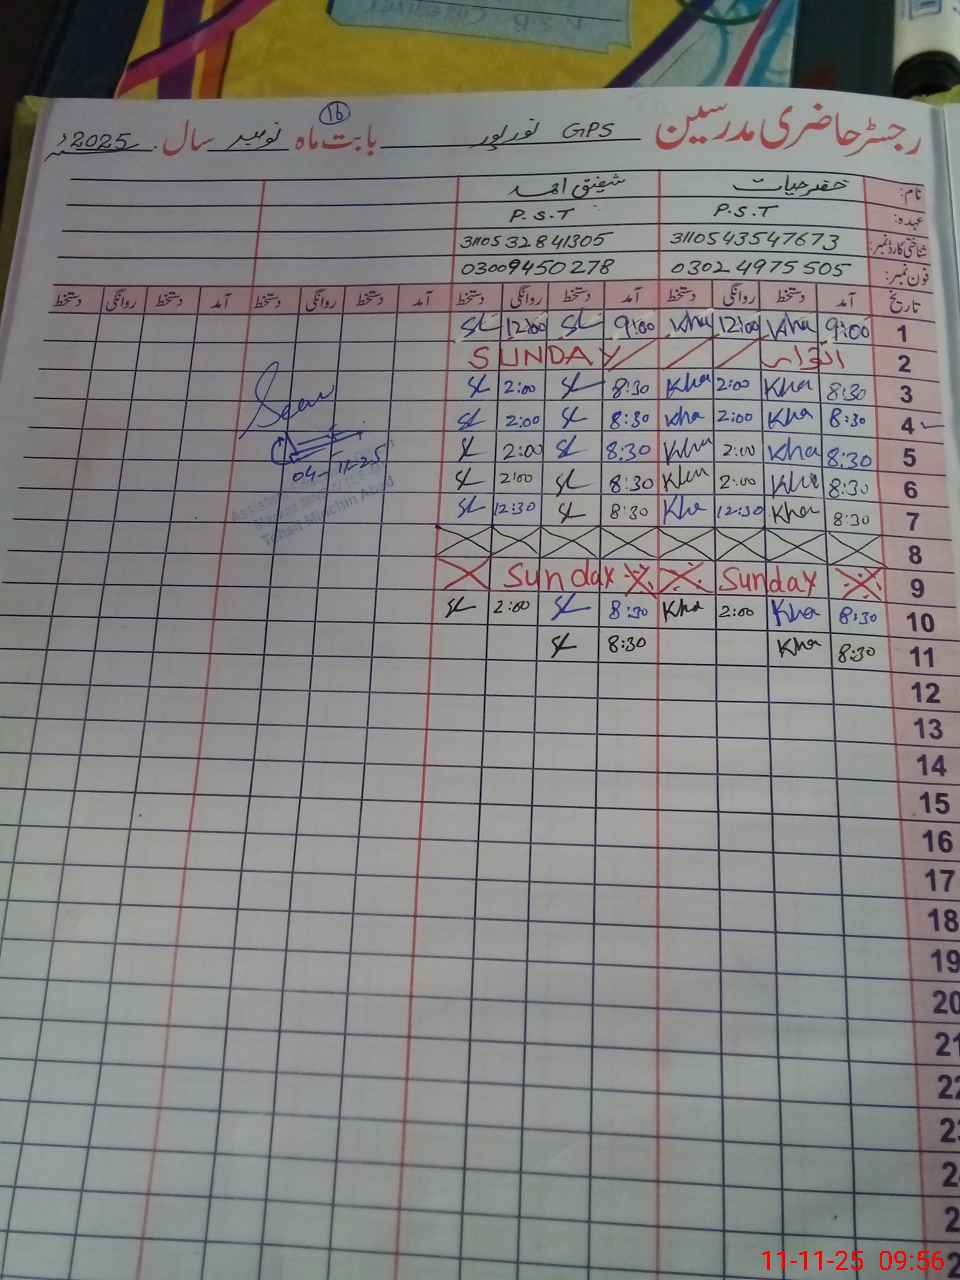 رجسٹر حاضری مدرسین GPS نور پور بابت ماہ نومبر سال 2025ء
16
نام: خضر حیات شفیق احمد
عہدہ: P.S.T P.S.T
شناختی کارڈ نمبر: 3110543547673 3110532841305
فون نمبر: 03024975505 03009450278
تاریخ آمد دستخط روانگی دستخط آمد دستخط روانگی دستخط آمد دستخط روانگی دستخط آمد دستخط روانگی دستخط
1 9:00 Kha 12:00 Kha 9:00 SL 12:00 SL
2 اتوار SUNDAY
3 8:30 Kha 2:00 Kha 8:30 SL 2:00 SL
4 8:30 Kha 2:00 Kha 8:30 SL 2:00 SL
5 8:30 Kha 2:00 Kha 8:30 SL 2:00 SL
6 8:30 Kha 2:00 Kha 8:30 SL 2:00 SL
7 8:30 Kha 12:30 Kha 8:30 SL 12:30 SL
8
9 Sunday Sunday
10 8:30 Kha 2:00 Kha 8:30 SL 2:00 SL
11 8:30 Kha 8:30 SL
04-11-25
12
13
14
15
16
17
18
19
20
21
22
11-11-25 09:56